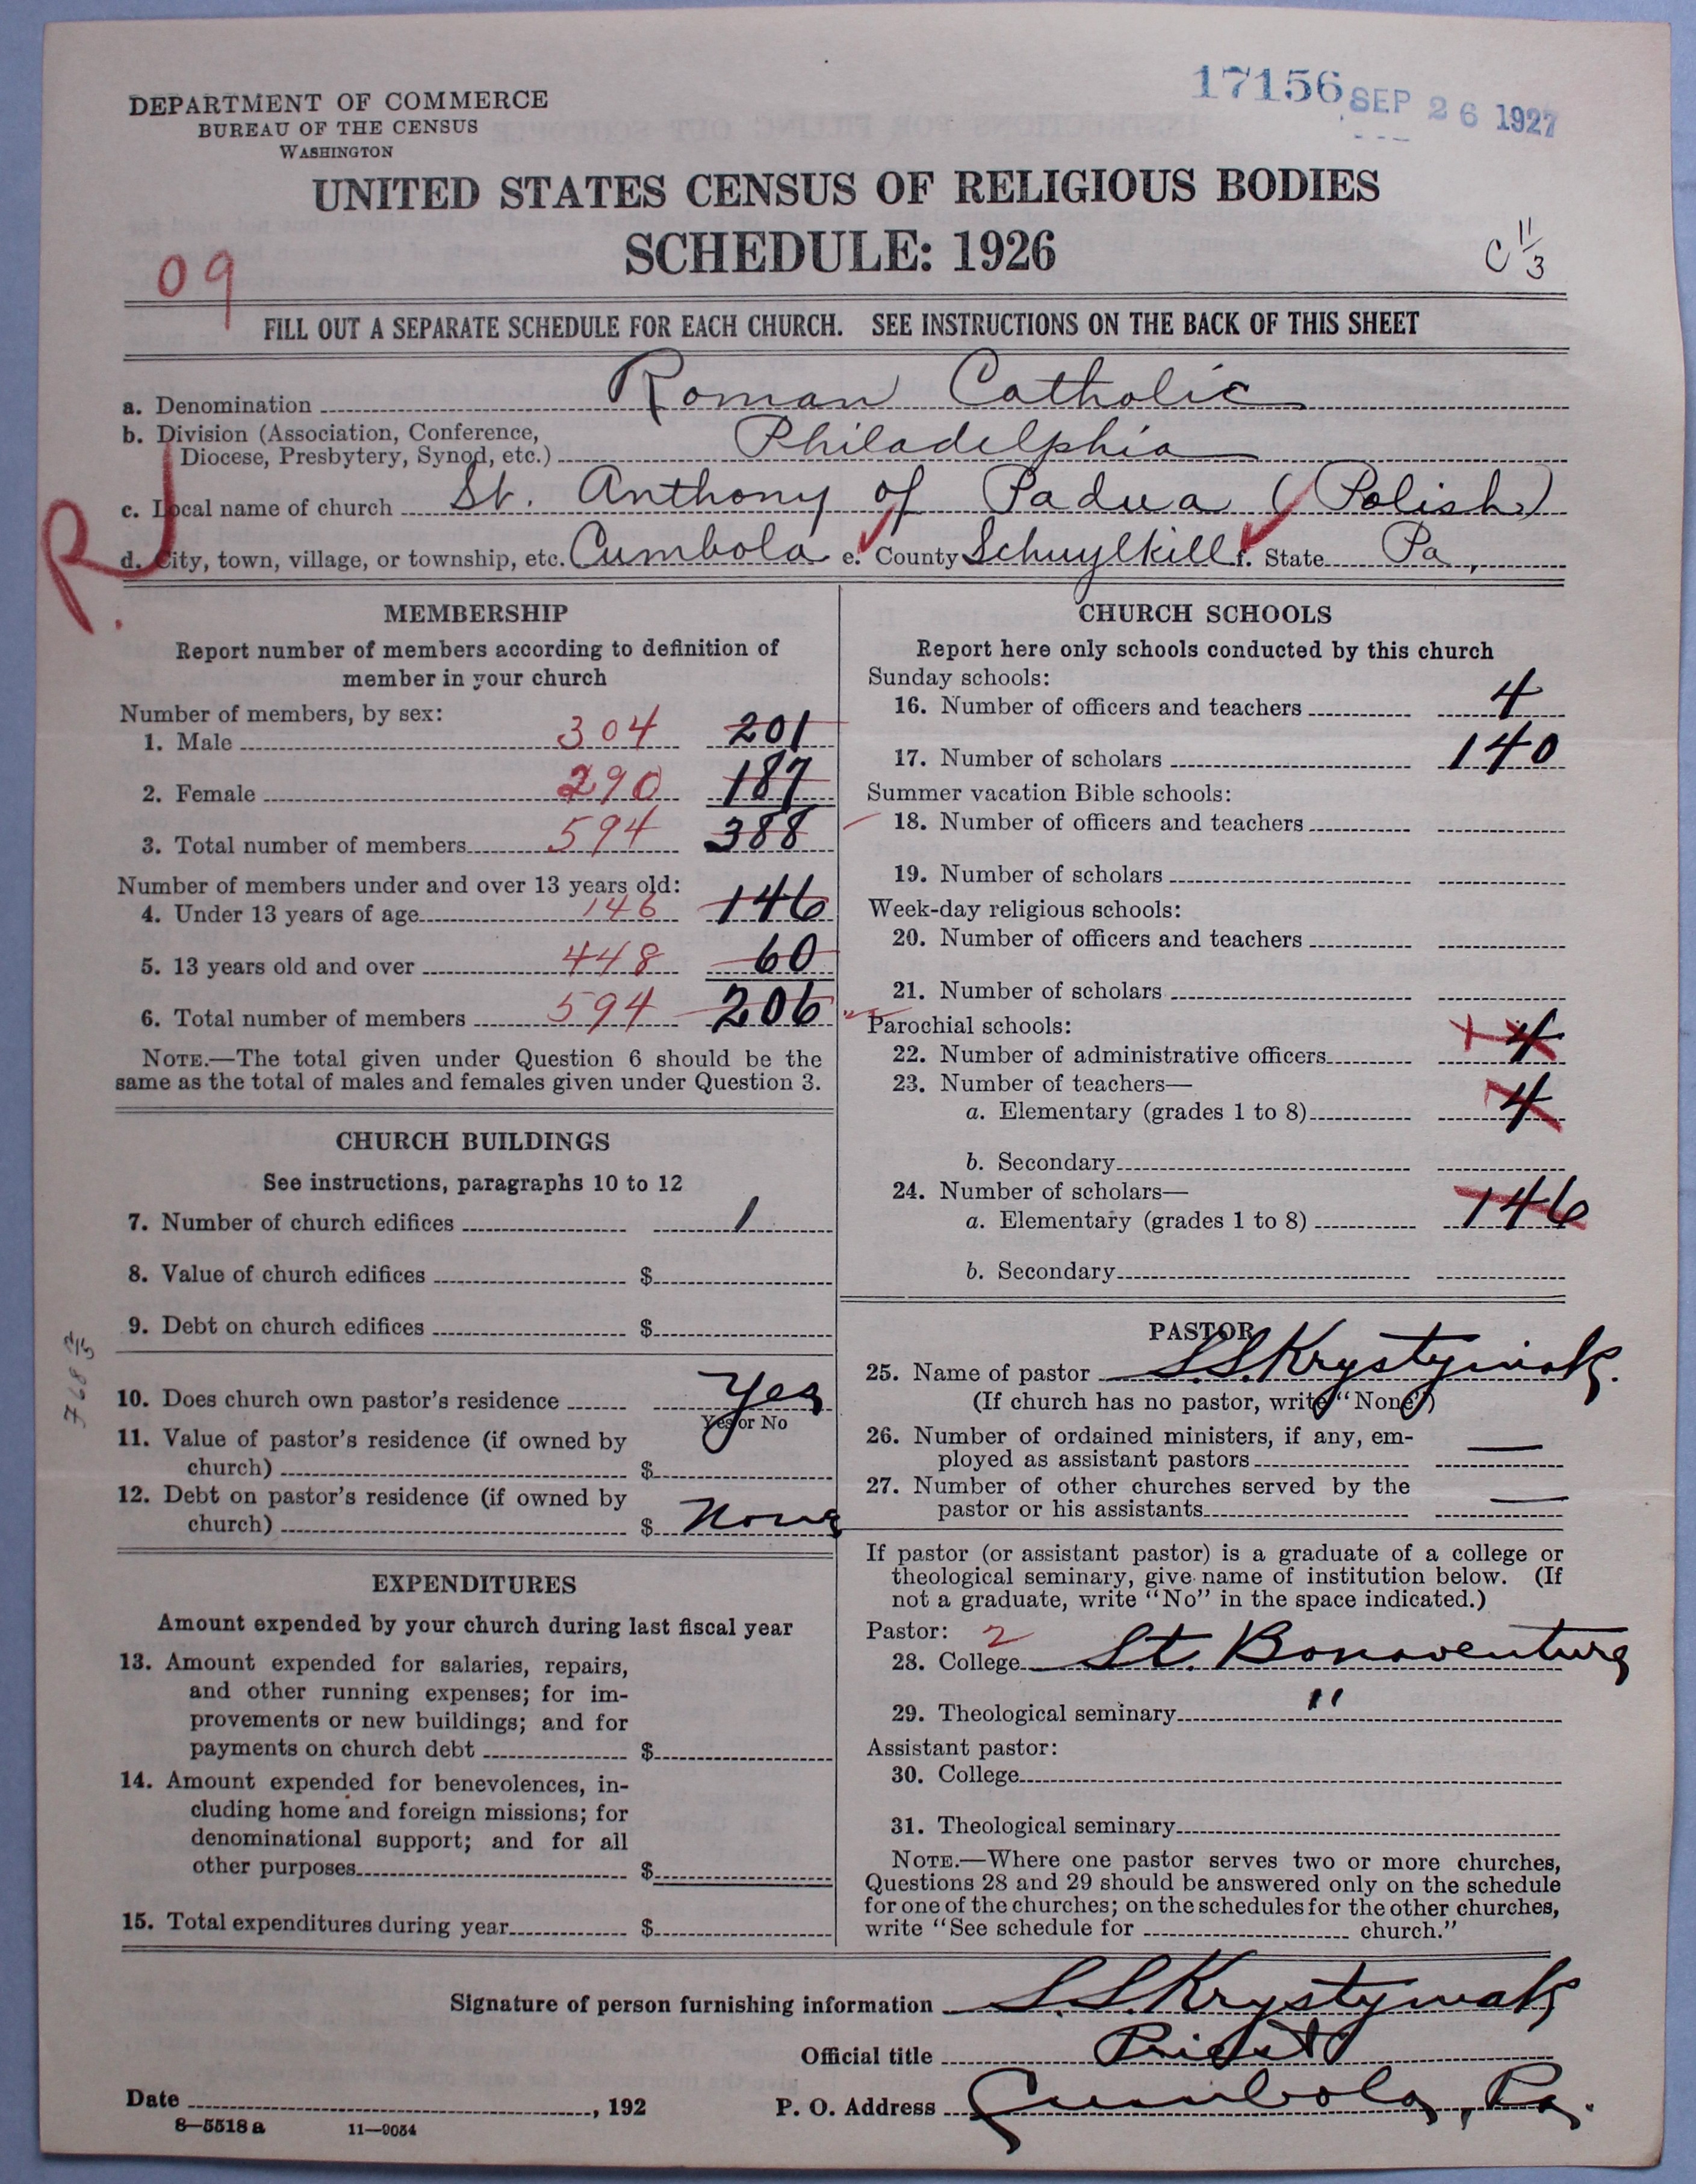 17156 SEP 26 1927
DEPARTMENT OF COMMERCE
BUREAU OF THE CENSUS
WASHINGTON
UNITED STATES CENSUS OF RELIGIOUS BODIES
SCHEDULE: 1926
C 11/3
09
FILL OUT A SEPARATE SCHEDULE FOR EACH CHURCH. SEE INSTRUCTIONS ON THE BACK OF THIS SHEET
a. Denomination Roman Catholic
b. Division (Association, Conference,
Diocese, Presbytery, Synod, etc.) Philadelphia
c. Local name of church St. Anthony of Padua (Polish)
d. City, town, village, or township, etc. Cumbola e. County Schuylkill f. State Pa.
R.
MEMBERSHIP
Report number of members according to definition of
member in your church
Number of members, by sex:
1. Male 304 201
2. Female 290 187
3. Total number of members 594 388
Number of members under and over 13 years old:
4. Under 13 years of age 146 146
5. 13 years old and over 448 60
6. Total number of members 594 206
NOTE.—The total given under Question 6 should be the
same as the total of males and females given under Question 3.
CHURCH BUILDINGS
See instructions, paragraphs 10 to 12
7. Number of church edifices 1
8. Value of church edifices $
9. Debt on church edifices $
10. Does church own pastor's residence Yes
Yes or No
11. Value of pastor's residence (if owned by
church) $
12. Debt on pastor's residence (if owned by
church) $ None
EXPENDITURES
Amount expended by your church during last fiscal year
13. Amount expended for salaries, repairs,
and other running expenses; for im-
provements or new buildings; and for
payments on church debt $
14. Amount expended for benevolences, in-
cluding home and foreign missions; for
denominational support; and for all
other purposes $
15. Total expenditures during year $
CHURCH SCHOOLS
Report here only schools conducted by this church
Sunday schools:
16. Number of officers and teachers 4
17. Number of scholars 140
Summer vacation Bible schools:
18. Number of officers and teachers
19. Number of scholars
Week-day religious schools:
20. Number of officers and teachers
21. Number of scholars
Parochial schools:
22. Number of administrative officers 4
23. Number of teachers—
a. Elementary (grades 1 to 8) 4
b. Secondary
24. Number of scholars—
a. Elementary (grades 1 to 8) 146
b. Secondary
PASTOR
25. Name of pastor S.S. Krystyniak.
(If church has no pastor, write "None")
26. Number of ordained ministers, if any, em-
ployed as assistant pastors —
27. Number of other churches served by the
pastor or his assistants —
If pastor (or assistant pastor) is a graduate of a college or
theological seminary, give name of institution below. (If
not a graduate, write "No" in the space indicated.)
Pastor: 2
28. College St. Bonaventure
29. Theological seminary "
Assistant pastor:
30. College
31. Theological seminary
NOTE.—Where one pastor serves two or more churches,
Questions 28 and 29 should be answered only on the schedule
for one of the churches; on the schedules for the other churches,
write "See schedule for church."
Signature of person furnishing information S.S. Krystyniak
Official title Priest
Date , 192 P. O. Address Cumbola, Pa.
8—5518 a 11—9054